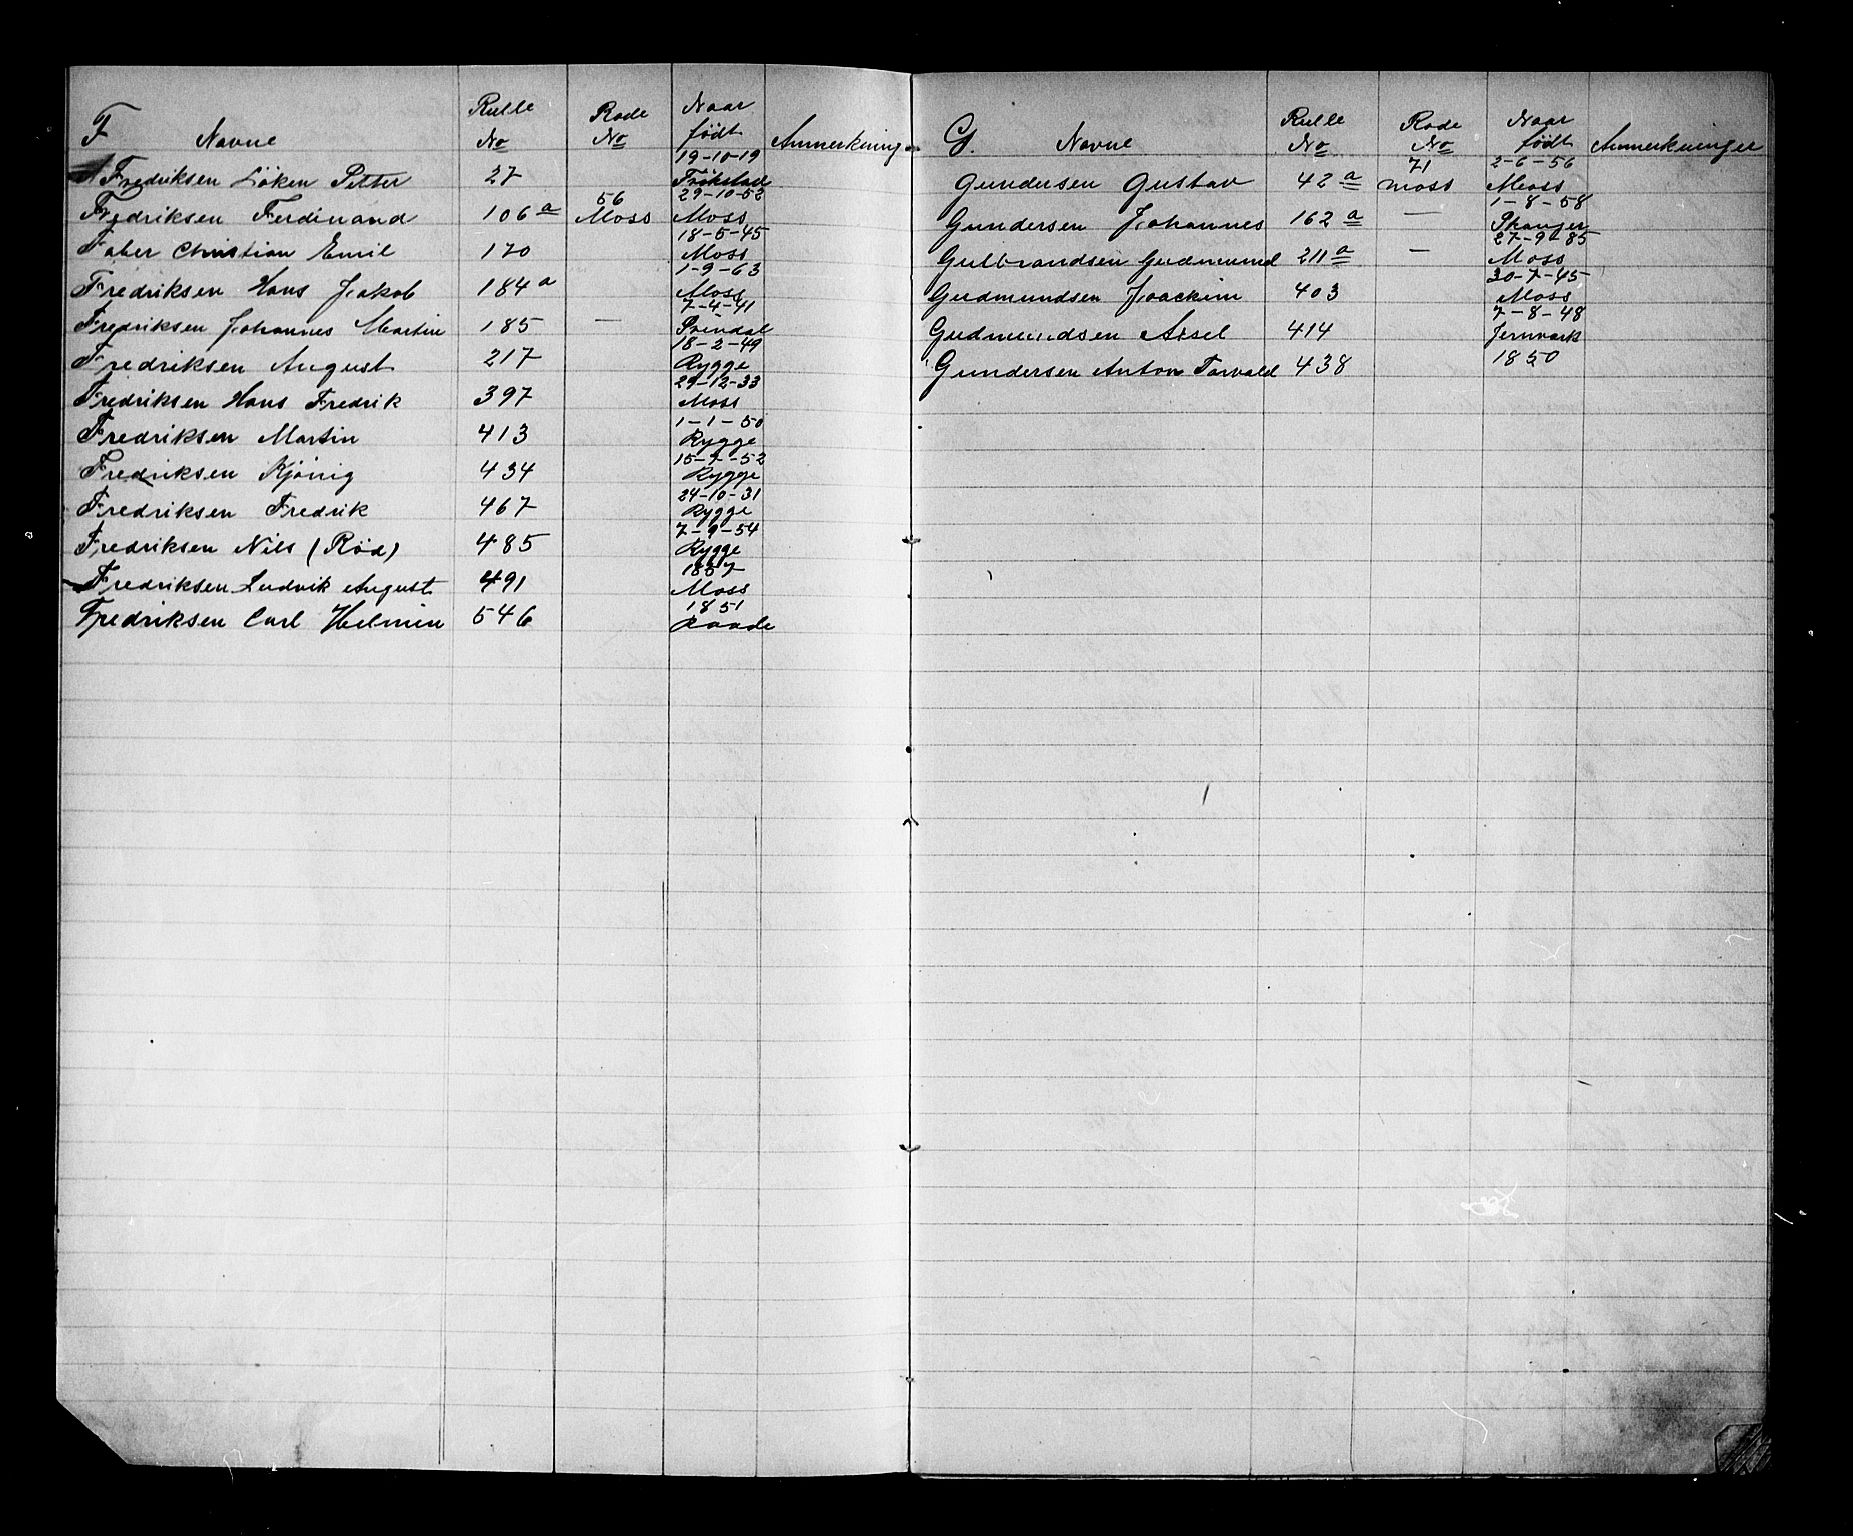 F Navne Rulle No Rode No Naar födt Anmerkning
Fredriksen Löken Petter 27 19-10-19 Trökstad
Fredriksen Ferdinand 106 a 56 Moss 29-10-52 Moss
Faber Christian Emil 170 18-5-45 Moss
Fredriksen Hans Jakob 184 a 1-9-63 Moss
Fredriksen Johannes Martin 185 — 7-4-41
Fredriksen August 217 18-2-49 Rygge
Fredriksen Hans Fredrik 397 29-12-33 Moss
Fredriksen Martin 413 1-1-50 Rygge
Fredriksen Kjönig 434 15-7-52 Rygge
Fredriksen Fredrik 467 24-10-31 Rygge
Fredriksen Nils (Röd) 485 7-9-54 Rygge
Fredriksen Ludvik August 491 1857 Moss
Fredriksen Carl Helmin 546 1851 Raade
G. Navne Rulle No Rode No Naar födt Anmerkninger
Gundersen Gustav 42 a 71 Moss 2-6-56 Moss
Gundersen Johannes 162 a — 1-8-58
Gulbrandsen Gudmund 211 a — 27-9-85 Moss
Gudmundsen Joackim 403 30-7-45 Moss
Gudmundsen Axsel 414 7-8-48 Jernværk
Gundersen Anton Torvald 438 1850